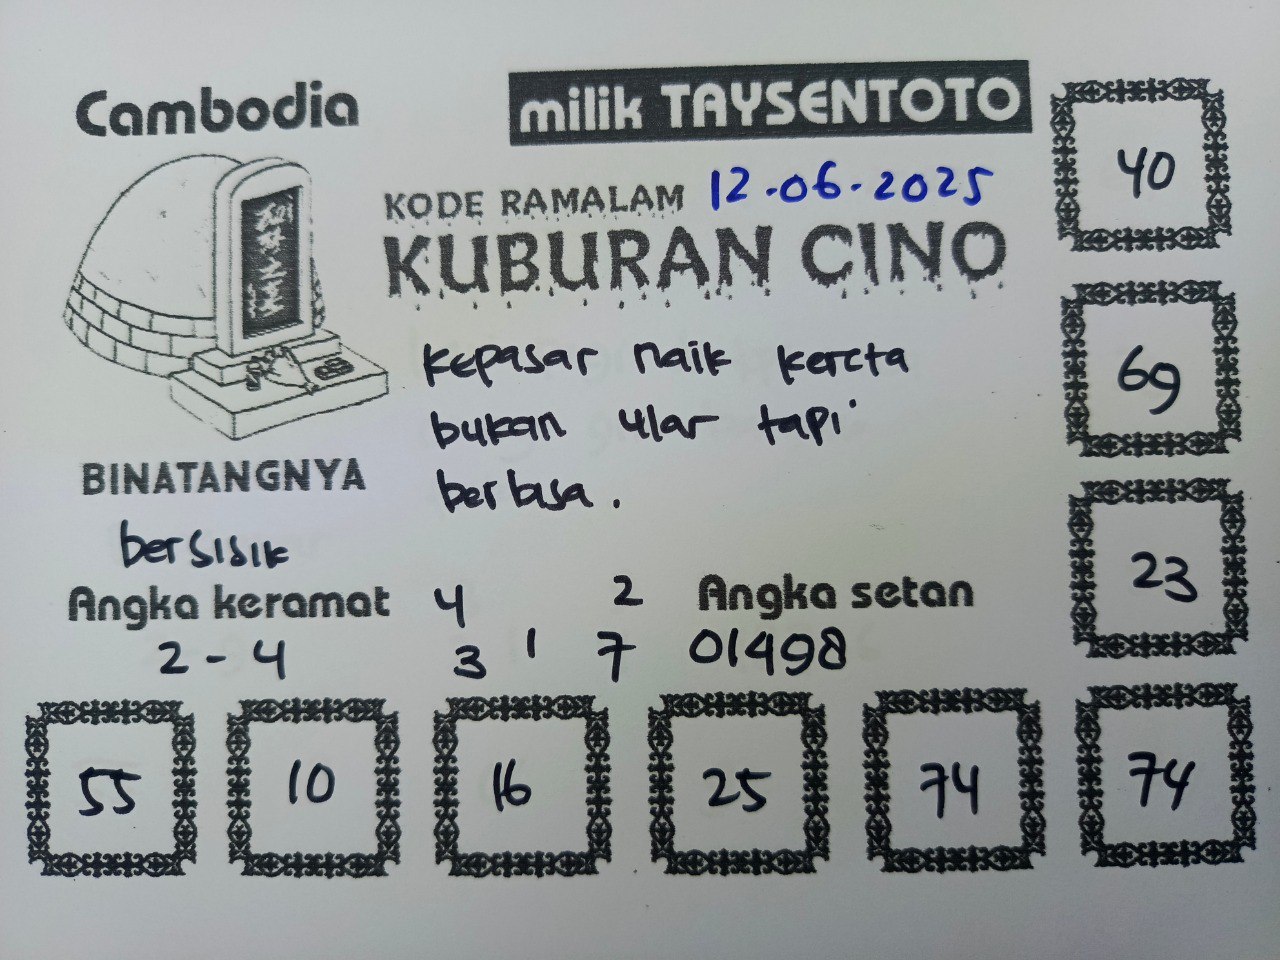 Cambodia
milik TAYSENTOTO
KODE RAMALAM 12-06-2025
KUBURAN CINO
kepasar naik kereta
bukan ular tapi
berbisa.
BINATANGNYA
bersisik
Angka keramat
2 - 4
4 2
3 1 7
Angka setan
01498
40
69
23
55 10 16 25 74 74